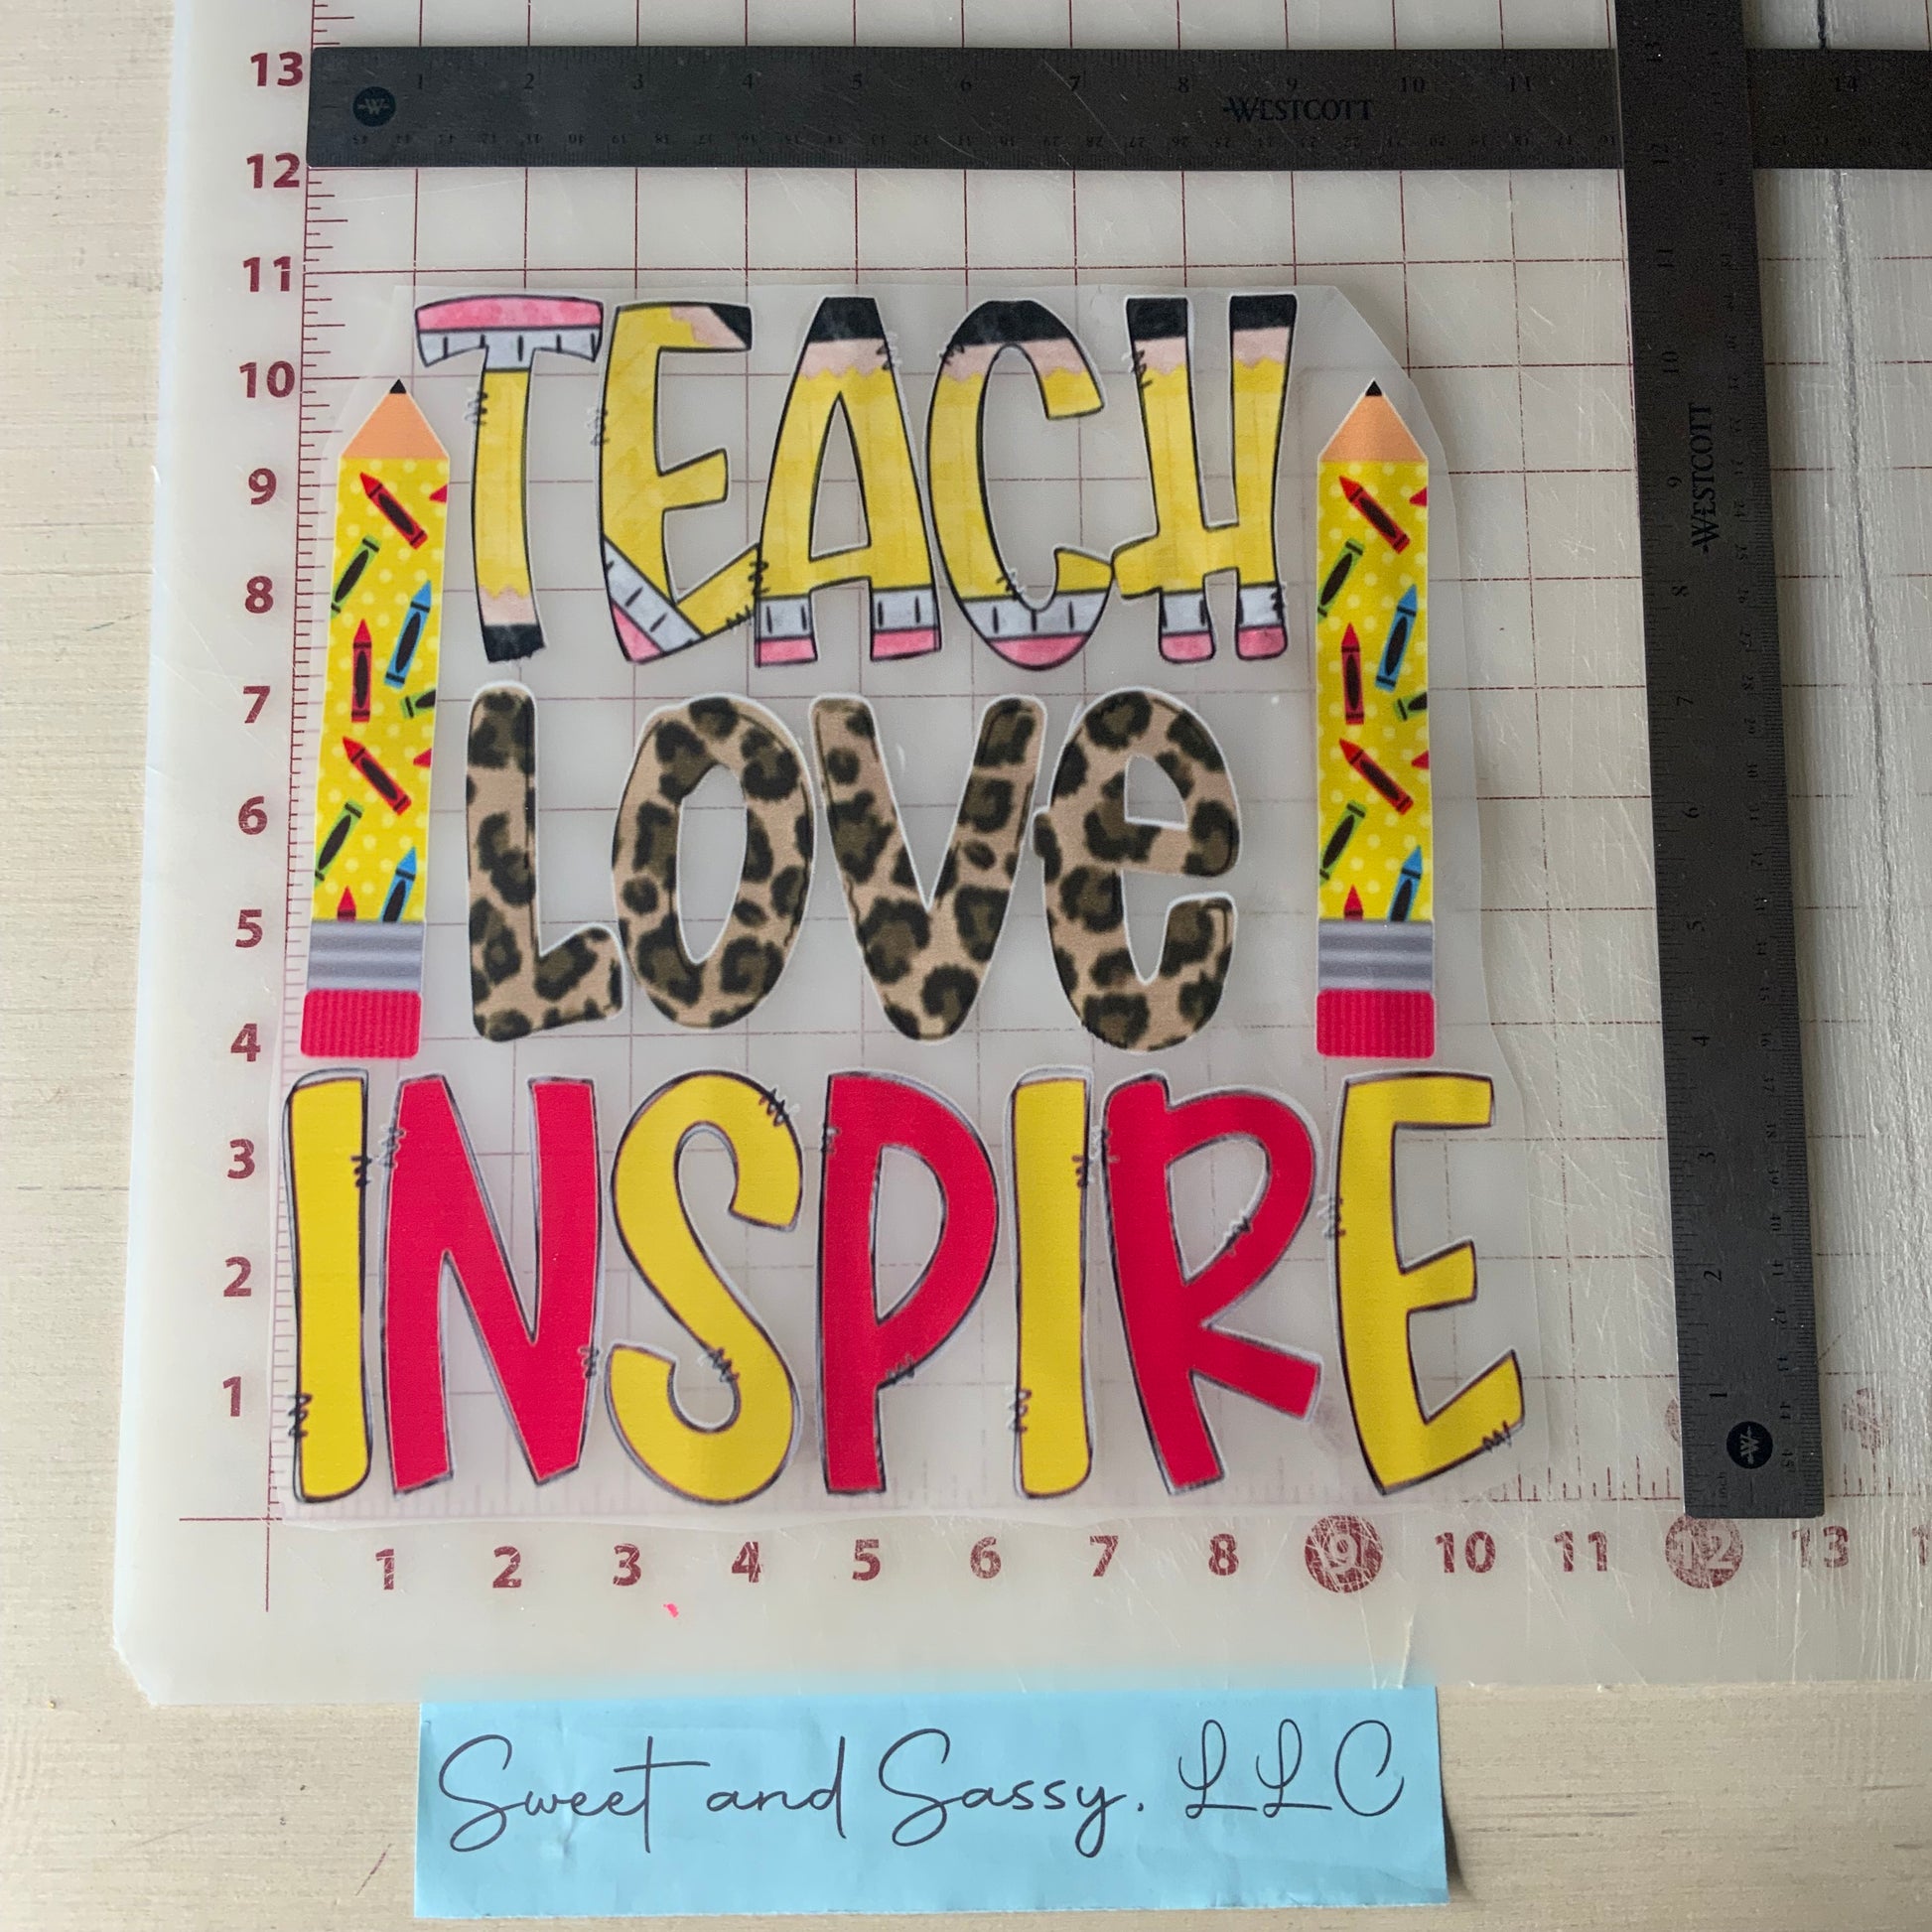 13
1 2 3 4 5 6 7 8 9 10 11 14
WESTCOTT
12
11
10
9
8
7
6
5
4
3
2
1
TEACH
LOVE
INSPIRE
WESTCOTT
13
12
11
10
9
8
7
6
5
4
3
2
1
1 2 3 4 5 6 7 8 9 10 11 12 13
Sweet and Sassy, LLC